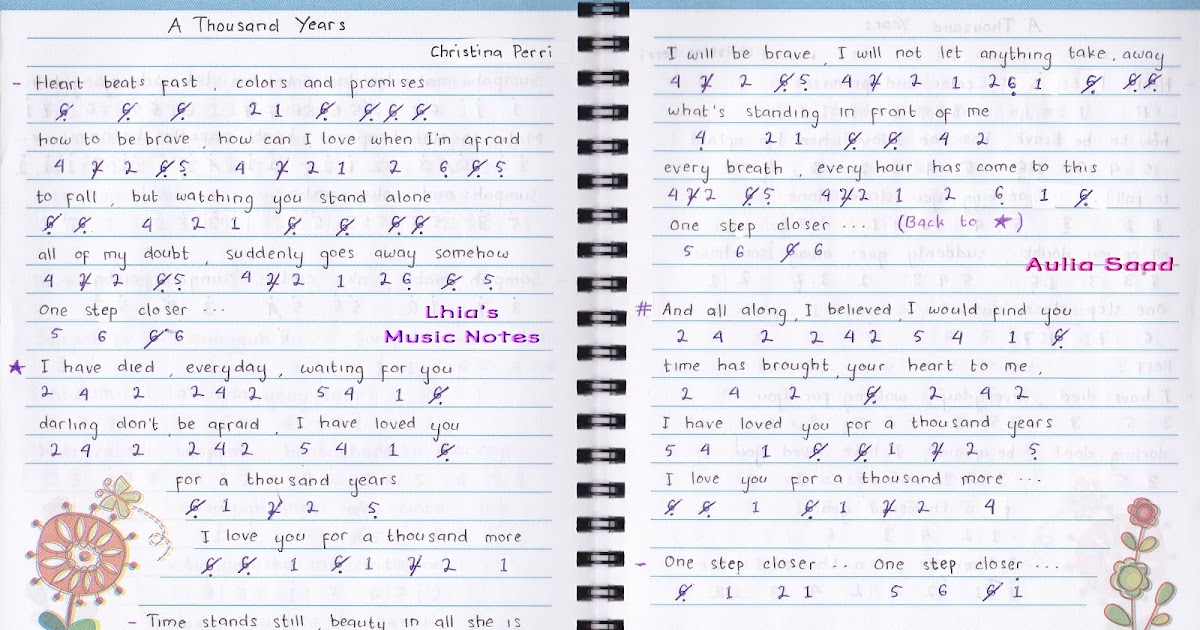 A Thousand Years
Christina Perri
- Heart beats fast, colors and promises
6 6 6 2 1 6 6 6 6
how to be brave, how can I love when I'm afraid
4 2 2 6 5 4 2 2 1 2 6 6 5
to fall, but watching you stand alone
6 6 4 2 1 6 6 6 6
all of my doubt, suddenly goes away somehow
4 2 2 6 5 4 2 2 1 2 6 6 5
One step closer ...
5 6 6 6
Lhia's
Music Notes
★ I have died, everyday, waiting for you
2 4 2 2 4 2 5 4 1 6
darling don't, be afraid, I have loved you
2 4 2 2 4 2 5 4 1 6
for a thousand years
6 1 2 2 5
I love you for a thousand more
6 6 1 6 1 2 2 1
- Time stands still, beauty in all she is
I will be brave, I will not let anything take, away
4 2 2 6 5 4 2 2 1 2 6 1 6 6 6
what's standing in front of me
4 2 1 6 6 4 2
every breath, every hour has come to this
4 2 2 6 5 4 2 2 1 2 6 1 6
One step closer ... (Back to ★)
5 6 6 6
Aulia Saad
# And all along, I believed, I would find you
2 4 2 2 4 2 5 4 1 6
time has brought, your heart to me,
2 4 2 6 2 4 2
I have loved you for a thousand years
5 4 1 6 6 1 2 2 5
I love you for a thousand more ...
6 6 1 6 1 2 2 4
- One step closer ... One step closer ...
6 1 2 1 5 6 6 1